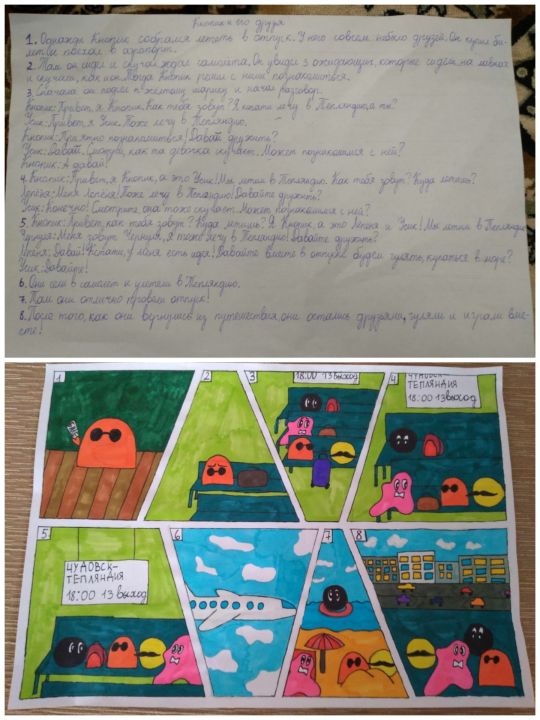 Кнопик и его друзья
1. Однажды Кнопик собрался лететь в отпуск. У него совсем не было друзей. Он купил би-
лет и поехал в аэропорт.
2. Там он сидел и скучал, ждал самолёта. Он увидел 3 ожидающих, которые сидели на лавках
и скучали, как и он. Тогда Кнопик решил с ними познакомиться.
3. Сначала он подсел к жёлтому шарику и начал разговор.
Кнопик: Привет, я Кнопик. Как тебя зовут? Я кстати лечу в Тепляндию, а ты?
Усик: Привет, я Усик. Тоже лечу в Тепляндию.
Кнопик: Приятно познакомиться! Давай дружить?
Усик: Давай. Смотри, как та девочка скучает. Может познакомимся с ней?
Кнопик: А давай!
4. Кнопик: Привет, я Кнопик, а это Усик! Мы летим в Тепляндию. Как тебя зовут? Куда летишь?
Меня Тоже лечу в Тепляндию! Давайте дружить?
Усик: Конечно! Смотрите, она тоже скучает. Может познакомимся с ней?
5. Кнопик: Привет, как тебя зовут? Куда летишь? Я Кнопик, а это и Усик! Мы летим в Тепляндию
Меня зовут я тоже лечу в Тепляндию! Давайте дружить?
Давай! Кстати, у меня есть идея! Давайте вместе в отпуске будем гулять, купаться в море?
Усик: Давайте!
6. Они сели в самолёт и улетели в Тепляндию.
7. Там они отлично провели отпуск!
8. После того, как они вернулись из путешествия, они остались друзьями, гуляли и играли вме-
сте!
1
2
3
18:00 13 выход
4
ЧУДОВСК-
ТЕПЛЯНДИЯ
18:00 13 выход
5
ЧУДОВСК-
ТЕПЛЯНДИЯ
18:00 13 выход
6
7
8